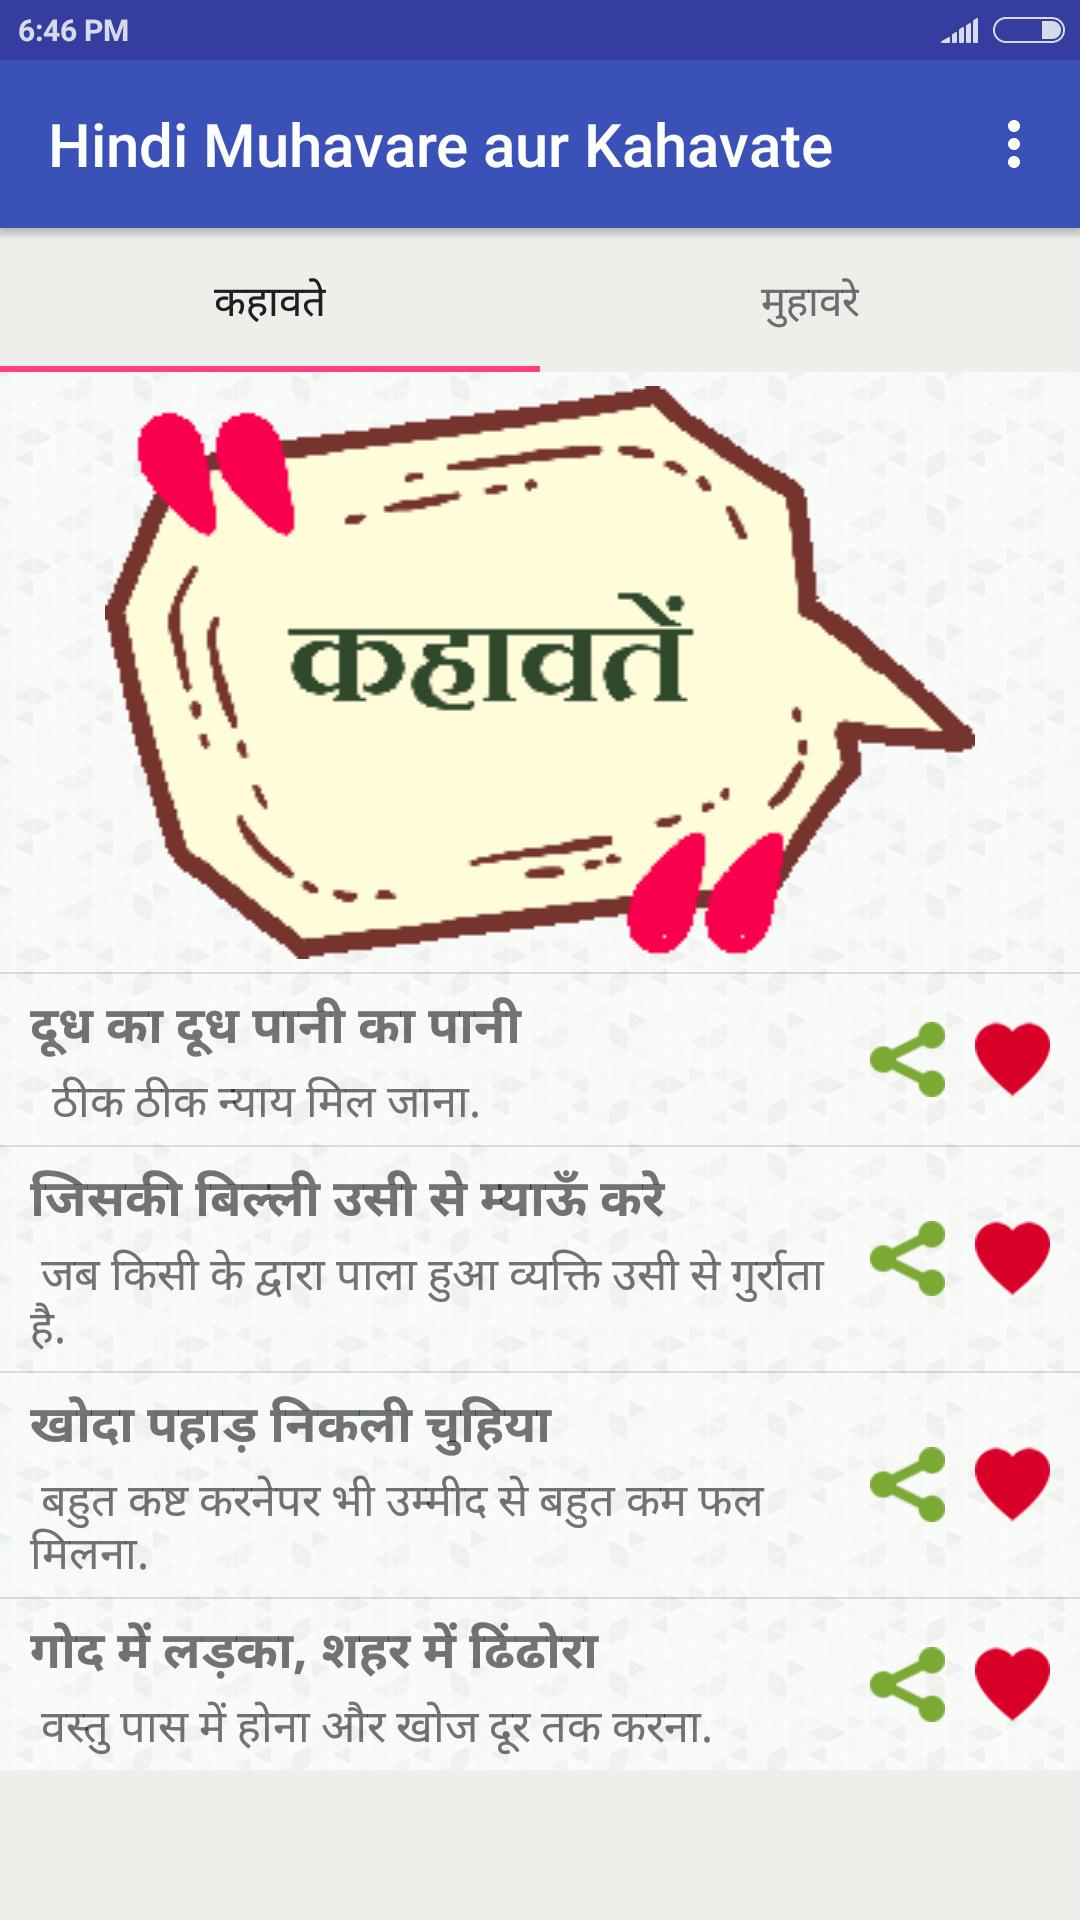 6:46 PM
Hindi Muhavare aur Kahavate
कहावते
मुहावरे
कहावतें
दूध का दूध पानी का पानी
ठीक ठीक न्याय मिल जाना.
जिसकी बिल्ली उसी से म्याऊँ करे
जब किसी के द्वारा पाला हुआ व्यक्ति उसी से गुर्राता
है.
खोदा पहाड़ निकली चुहिया
बहुत कष्ट करनेपर भी उम्मीद से बहुत कम फल
मिलना.
गोद में लड़का, शहर में ढिंढोरा
वस्तु पास में होना और खोज दूर तक करना.